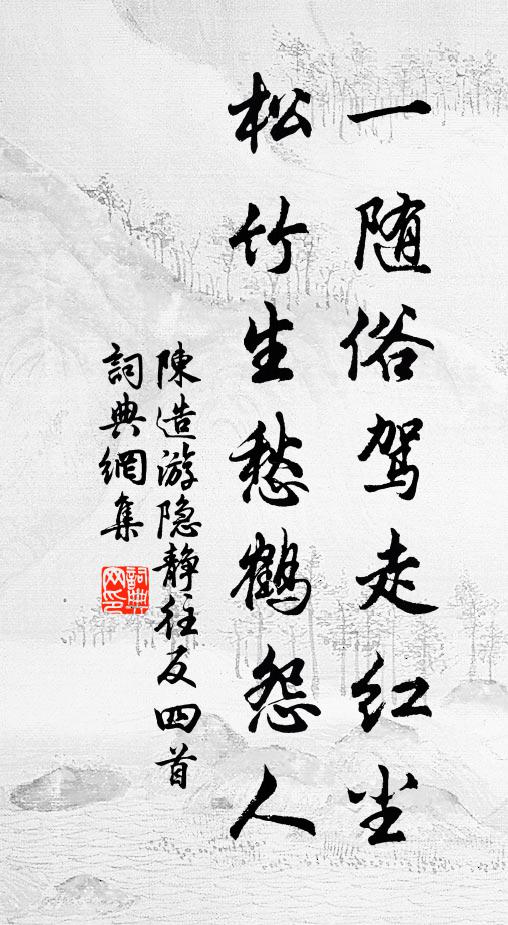 一随俗驾走红尘
松竹生愁鹤怨人
陳造游隐静往反四首
詞典網集
詞典网印